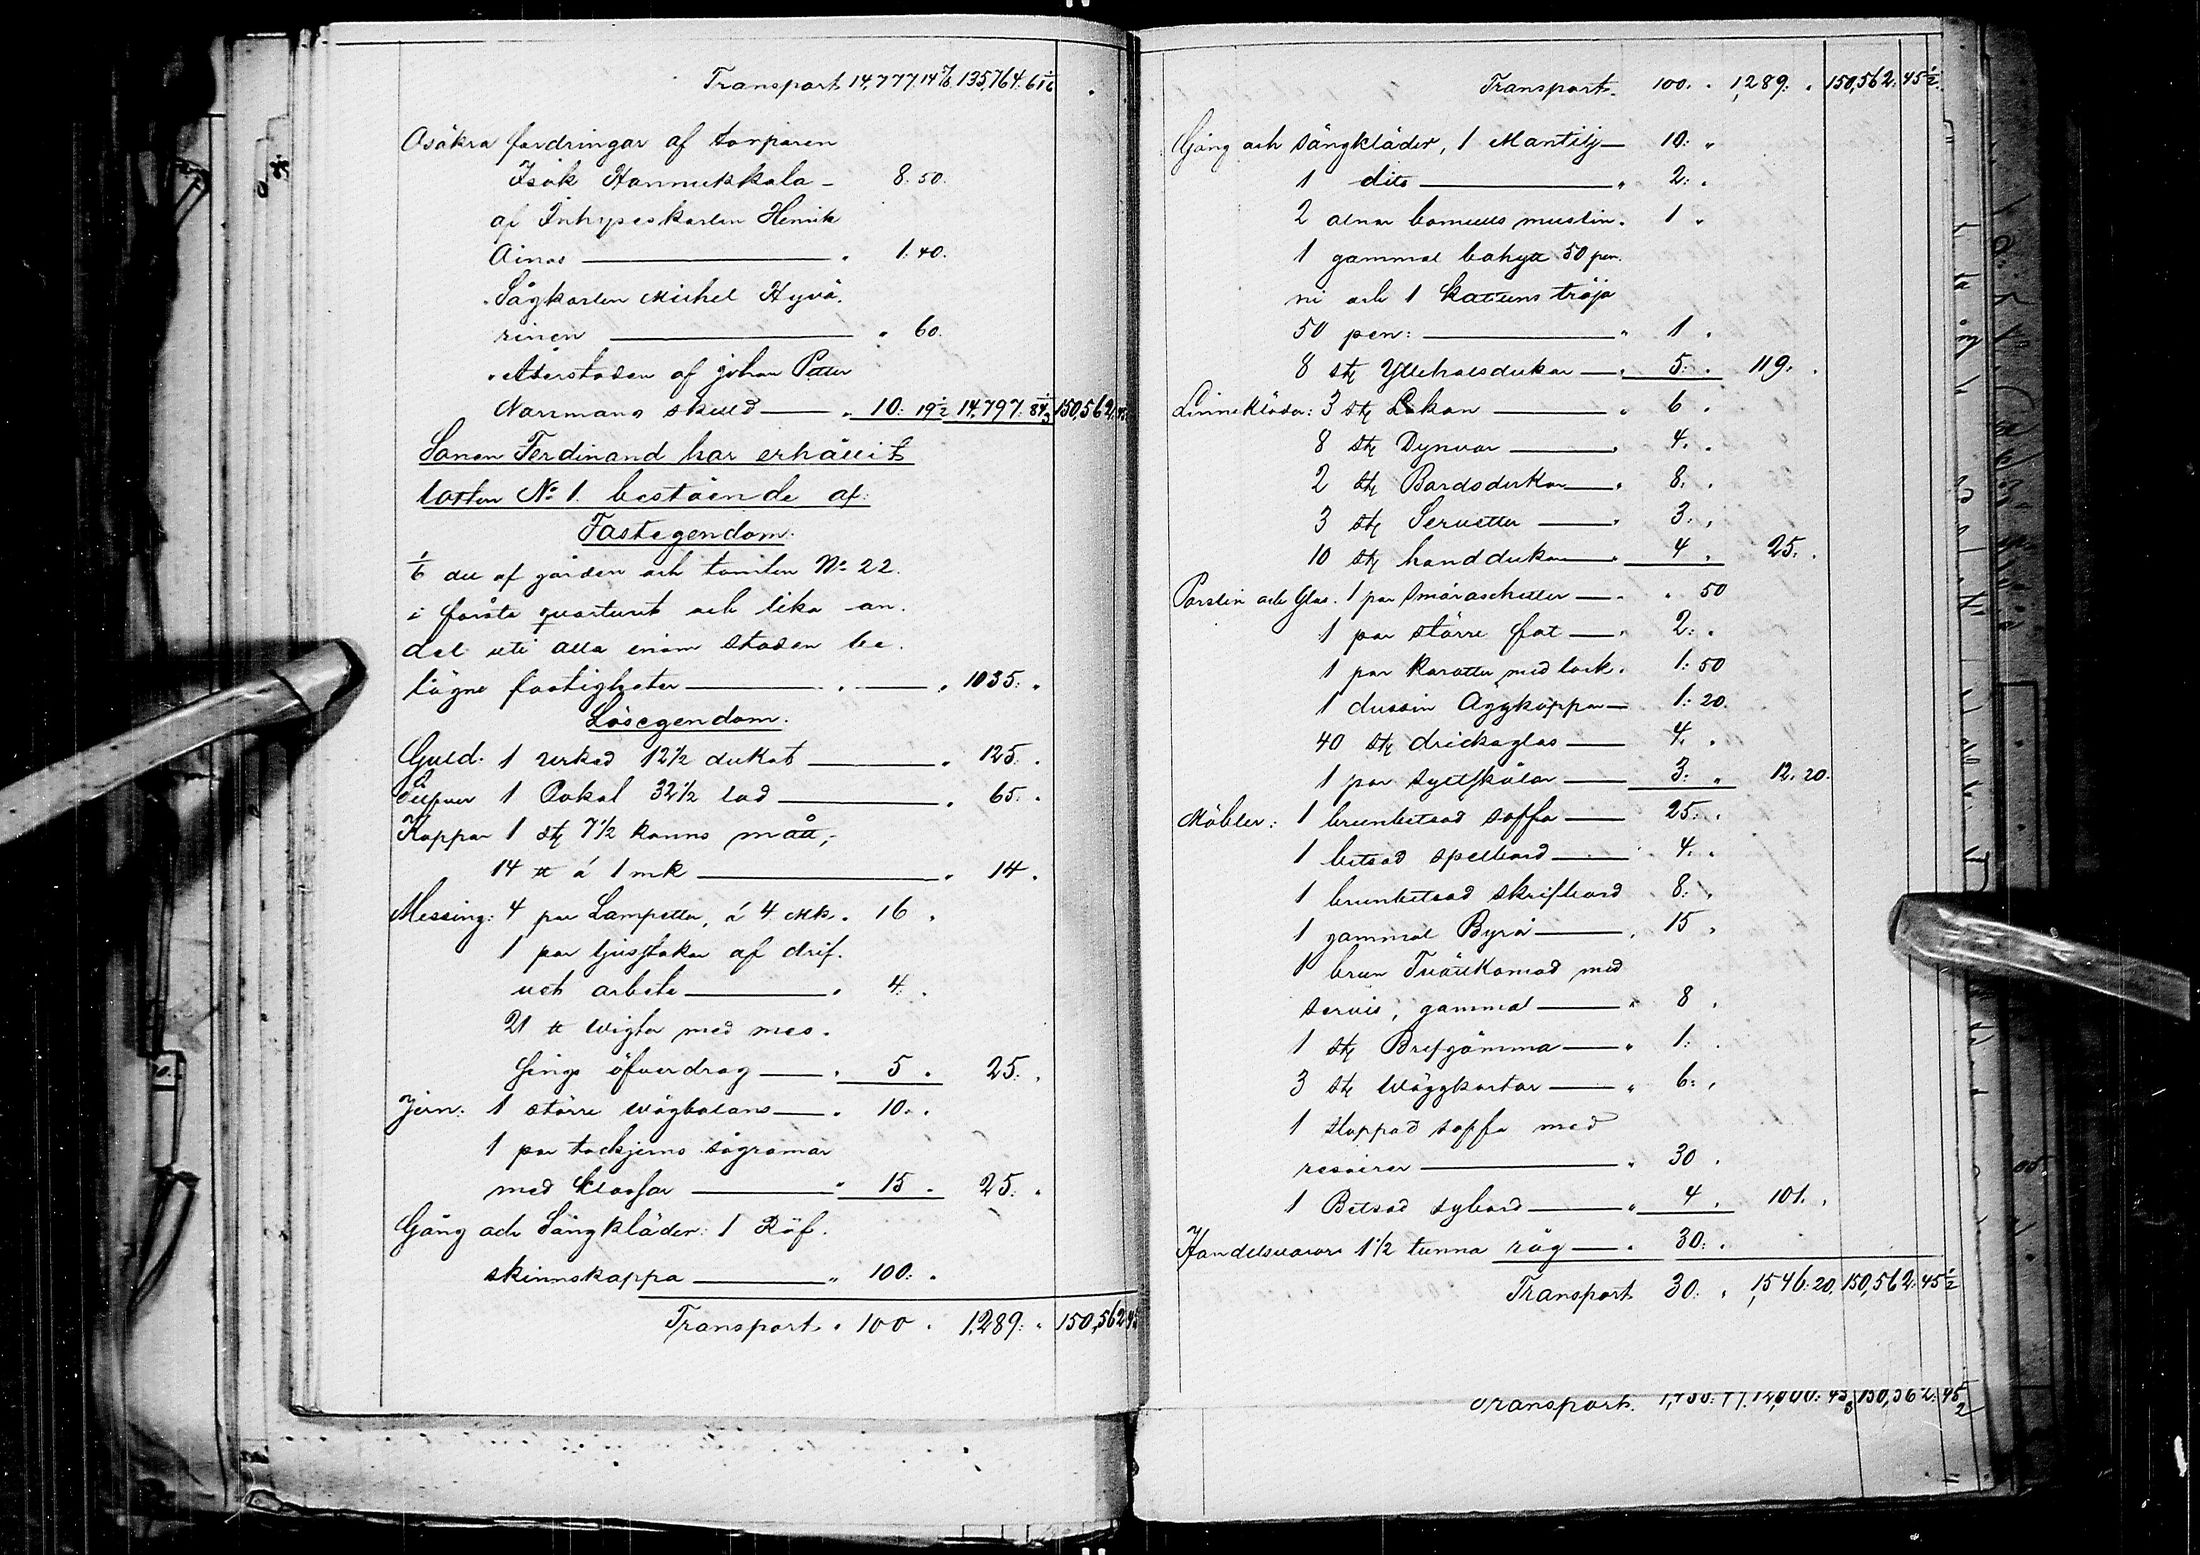 Transport 14,777. 14 5/6 135,764. 61 1/6
Osäkra fordringar af torparen
Isak Hannukkala - 8. 50.
af Inhyseskarlen Henrik
Ainas " 1. 40.
" Sågkarlen Michel Hyvä-
rinen " 60.
" Återstoden af Johan Petter
Narrmans skuld " 10: 19 1/2 14,797. 84 1/3 150,562. 45
Sonen Ferdinand har erhållit
lotten No 1. bestående af:
Fastegendom.
1/6 del af gården och tomten No 22.
i första quarteret och lika an-
del uti alla inom staden be-
lägne fastigheter " 1035: "
Lösegendom.
Guld. 1 urked 12 1/2 dukat " 125: "
Silfver 1 Pokal 32 1/2 lod " 65: "
Koppar 1 st. 7 1/2 kanns mått,
14 ℔ á 1 mk " 14 "
Messing: 4 par Lampetter, á 4 Mk. 16 "
1 par ljusstakar af drif-
vet arbete " 4: "
21 ℔ wigter med mes-
sings öfverdrag " 5 " 25: "
Jern: 1 större wågbalans " 10: "
1 par tackjerns sågramar
med klossar " 15 " 25: "
Gång och Sängkläder: 1 Räf-
skinnskappa " 100: "
Transport " 100 " 1,289: " 150,562. 45
Transport. 100: " 1,289: " 150,562: 45 1/2
Gång och sängkläder, 1 Mantilj 10: "
1 dito " 2: "
2 alnar bomulls muslin. 1 "
1 gammal bahytt 50 pen-
ni och 1 kattuns tröja
50 pen: " 1 "
8 st. Yllehalsdukar " 5: " 119: "
Linnekläder: 3 st. Lakan " 6 "
8 st. Dynvar " 4. "
2 st. Bordsdukar " 8. "
3 st. Servetter " 3: "
10 st. handdukar " 4 " 25: "
Porslin och Glas. 1 par smörasietter " 50
1 par större fat " 2: "
1 par karotter med lock. 1: 50
1 dussin Äggkoppar 1: 20.
40 st. dricksglas 4. "
1 par syltskålar 3: " 12. 20.
Möbler: 1 brunbetsad soffa 25: "
1 betsad spelbord " 4. "
1 brunbetsad skrifbord 8: "
1 gammal Byrå " 15 "
1 brun Tvättkomod med
servis, gammal " 8 "
1 st. Brefgömma " 1: "
3 st. Wäggkartor " 6: "
1 stoppad soffa med
resårer " 30 "
1 Betsad sybord " 4 " 101. "
Handelsvaror: 1 1/2 tunna råg " 30: "
Transport 30: " 1,546. 20. 150,562: 45 1/2
Transport. 150,562: 45 1/2